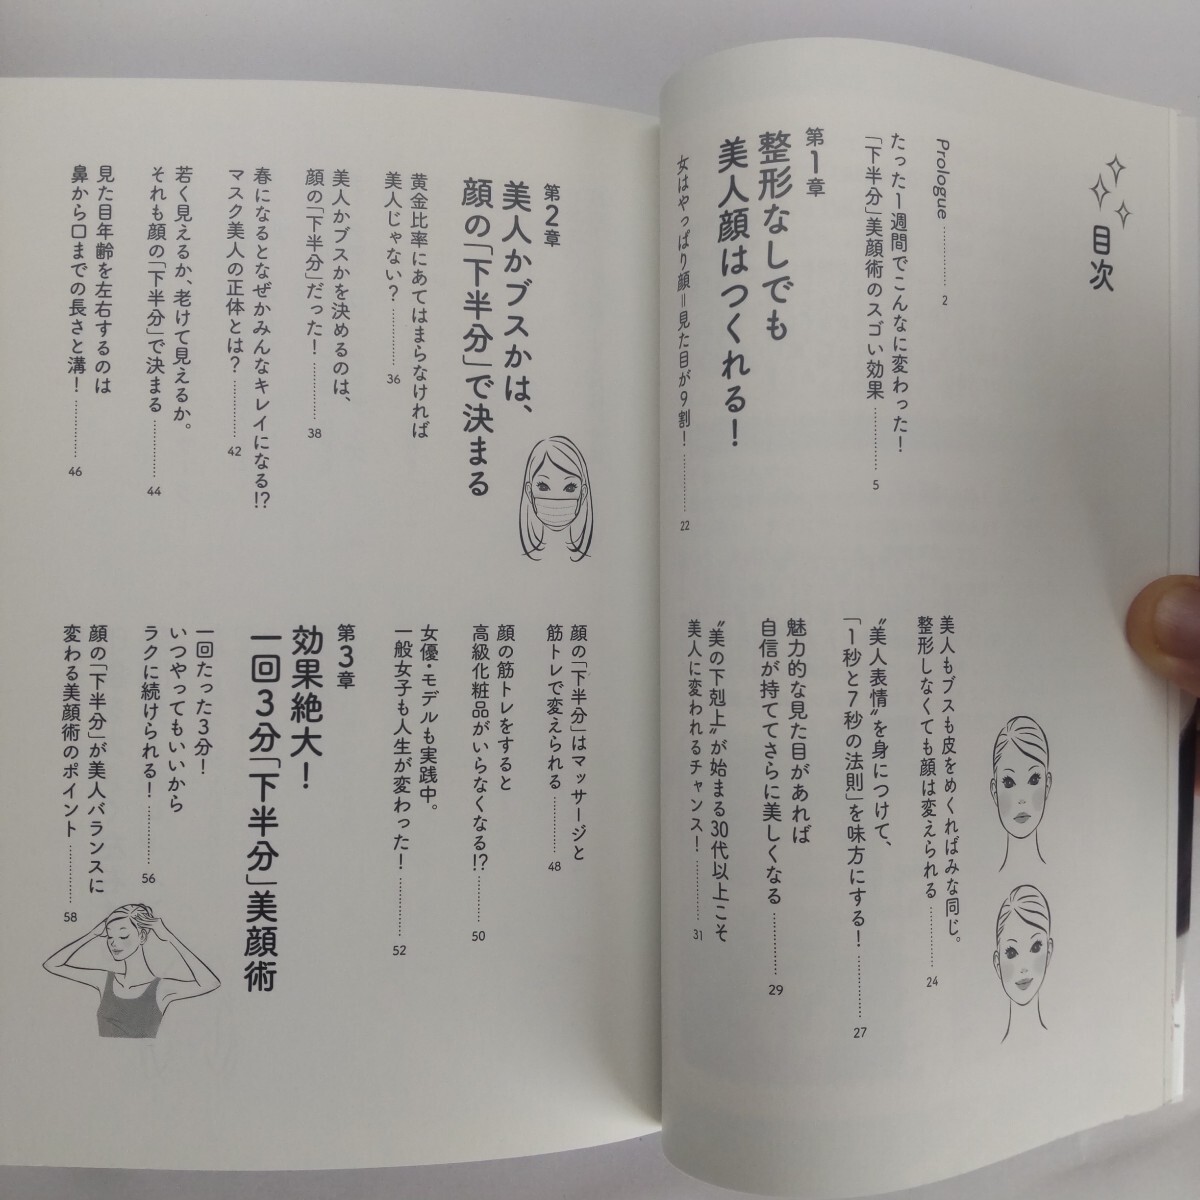 目次
Prologue ………… 2
たった1週間でこんなに変わった!
「下半分」美顔術のスゴい効果 ………… 5
第1章
整形なしでも
美人顔はつくれる!
女はやっぱり顔=見た目が9割! ………… 22
美人もブスも皮をめくればみな同じ。
整形しなくても顔は変えられる ………… 24
"美人表情"を身につけて、
「1秒と7秒の法則」を味方にする! ………… 27
魅力的な見た目があれば
自信が持ててさらに美しくなる ………… 29
"美の下剋上"が始まる30代以上こそ
美人に変われるチャンス! ………… 31
第2章
美人かブスかは、
顔の「下半分」で決まる
黄金比率にあてはまらなければ
美人じゃない? ………… 36
美人かブスかを決めるのは、
顔の「下半分」だった! ………… 38
春になるとなぜかみんなキレイになる!?
マスク美人の正体とは? ………… 42
若く見えるか、老けて見えるか。
それも顔の「下半分」で決まる ………… 44
見た目年齢を左右するのは
鼻から口までの長さと溝! ………… 46
顔の「下半分」はマッサージと
筋トレで変えられる ………… 48
顔の筋トレをすると
高級化粧品がいらなくなる!? ………… 50
女優・モデルも実践中。
一般女子も人生が変わった! ………… 52
第3章
効果絶大!
一回3分「下半分」美顔術
一回たった3分!
いつやってもいいから
ラクに続けられる! ………… 56
顔の「下半分」が美人バランスに
変わる美顔術のポイント ………… 58